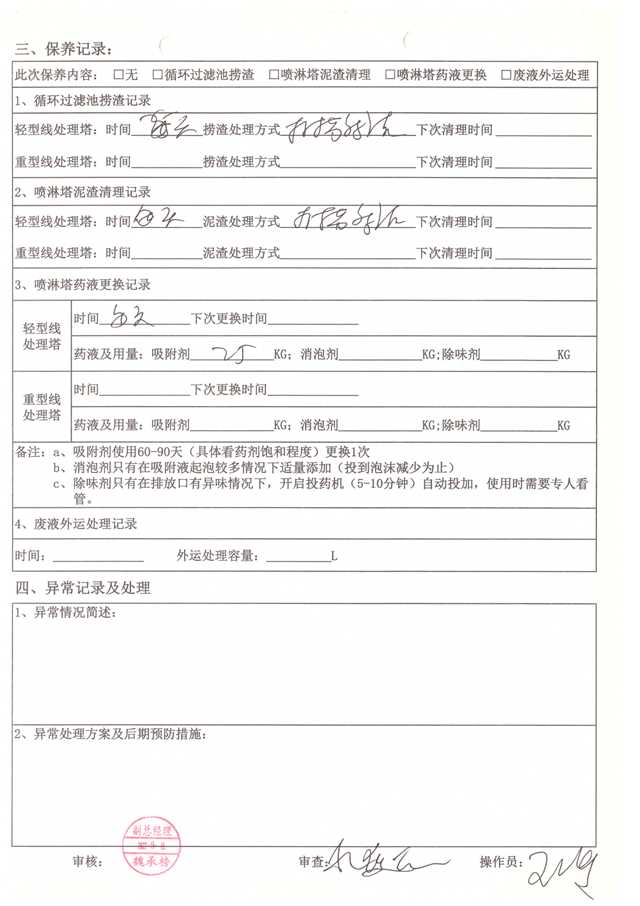 三、保养记录:
此次保养内容: □无 □循环过滤池捞渣 □喷淋塔泥渣清理 □喷淋塔药液更换 □废液外运处理
1、循环过滤池捞渣记录
轻型线处理塔: 时间 每天 捞渣处理方式 下次清理时间
重型线处理塔: 时间 捞渣处理方式 下次清理时间
2、喷淋塔泥渣清理记录
轻型线处理塔: 时间 每天 泥渣处理方式 下次清理时间
重型线处理塔: 时间 泥渣处理方式 下次清理时间
3、喷淋塔药液更换记录
轻型线处理塔
时间 每天 下次更换时间
药液及用量: 吸附剂 25 KG; 消泡剂 KG;除味剂 KG
重型线处理塔
时间 下次更换时间
药液及用量: 吸附剂 KG; 消泡剂 KG;除味剂 KG
备注: a、吸附剂使用60-90天（具体看药剂饱和程度）更换1次
b、消泡剂只有在吸附液起泡较多情况下适量添加（投到泡沫减少为止）
c、除味剂只有在排放口有异味情况下，开启投药机（5-10分钟）自动投加，使用时需要专人看
管。
4、废液外运处理记录
时间: 外运处理容量: L
四、异常记录及处理
1、异常情况简述:
2、异常处理方案及后期预防措施:
副总经理
审核: 审查: 操作员: